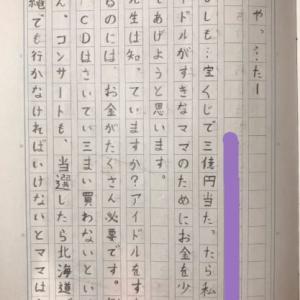 やっ‥たー
もしも…宝くじで三億円当たったら私
イドルがすきなママのためにお金を少
てあげようと思います。
先生は知っていますか?アイドルをす
るのには、お金がたくさん必要です。
CDはさいてい三まい買わないとい
ん。コンサートも、当選したら北海道
縄でも行かなければいけないとママは